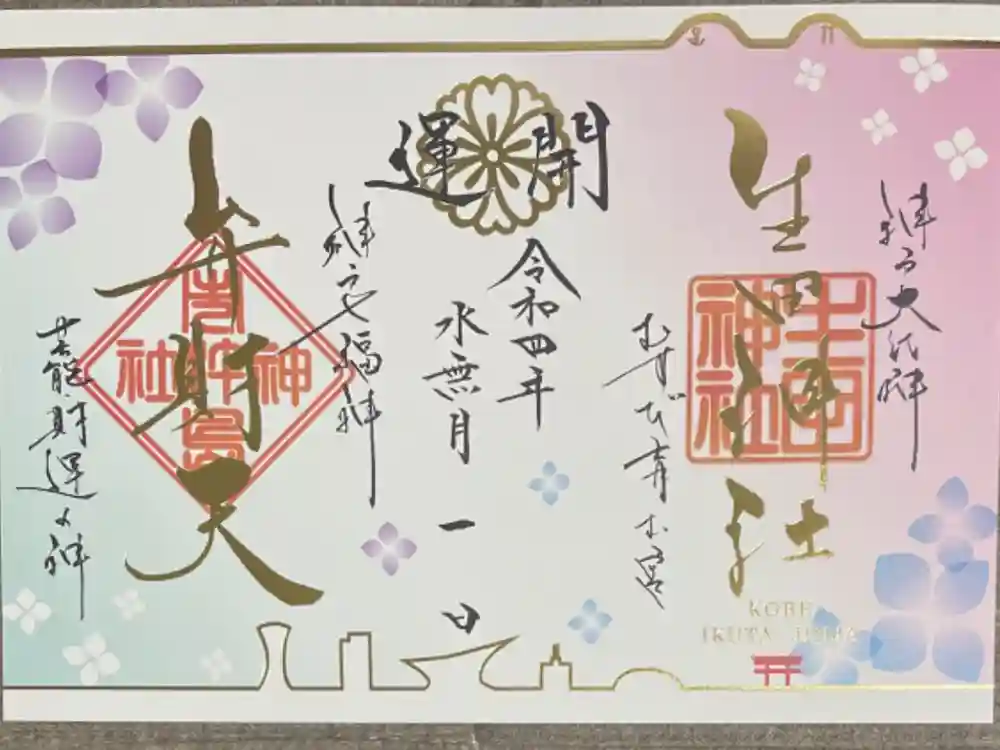 開運
生田神社
むすび育むお宮
令和四年
水無月一日
神戸七福神
弁財天
芸能・財運の神
生田神社
市杵島神社
KOBE
IKUTA JINJA